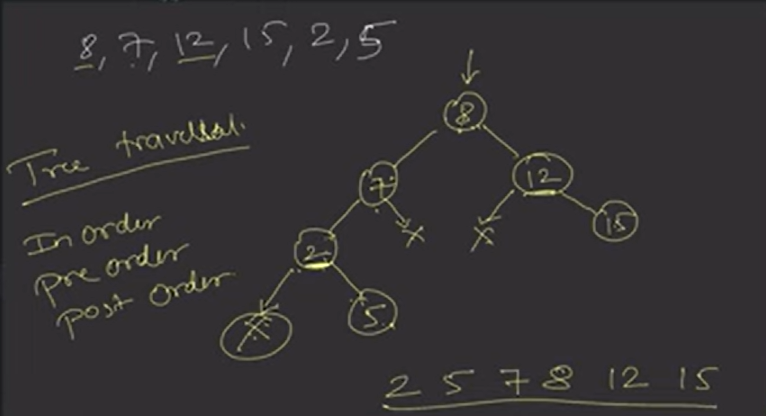 8, 7, 12, 15, 2, 5
Tree traversal.
In order
pre order
post order
8
7
12
x
x
15
2
x
5
2 5 7 8 12 15